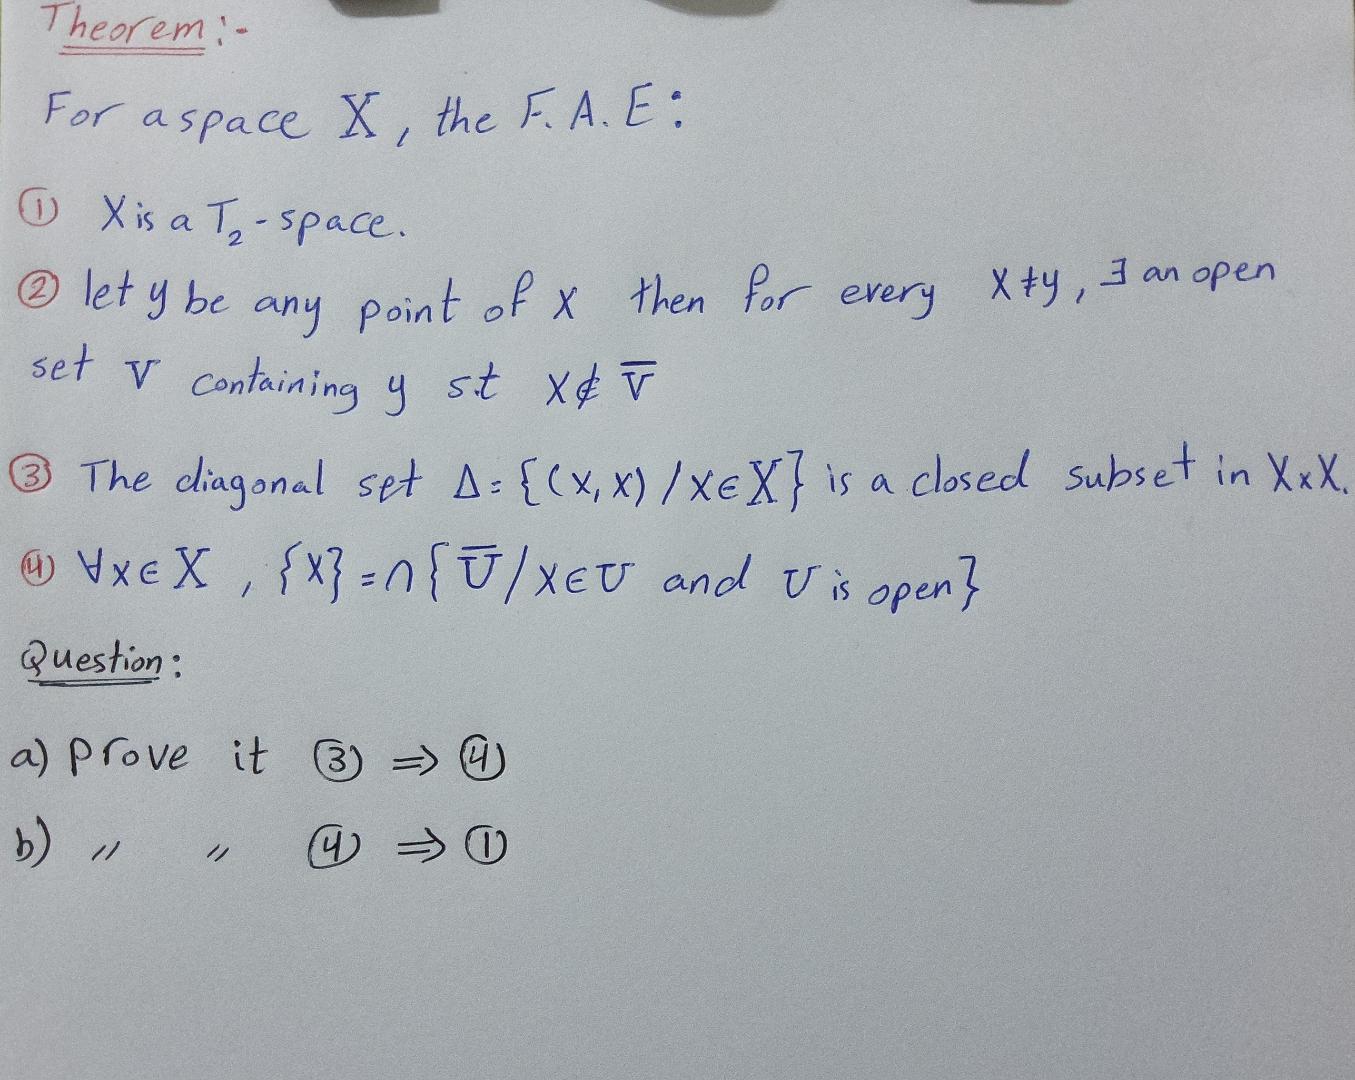 Theorem:-
For a space X, the F.A.E:
① X is a T₂-space.
② let y be any point of X then for every x≠y, ∃ an open
set V containing y s.t x∉V̅
③ The diagonal set Δ={(x,x)/x∈X} is a closed subset in X×X.
④ ∀x∈X, {x}=∩{U̅/x∈U and U is open}
Question:
a) prove it ③ ⇒ ④
b) 〃 〃 ④ ⇒ ①